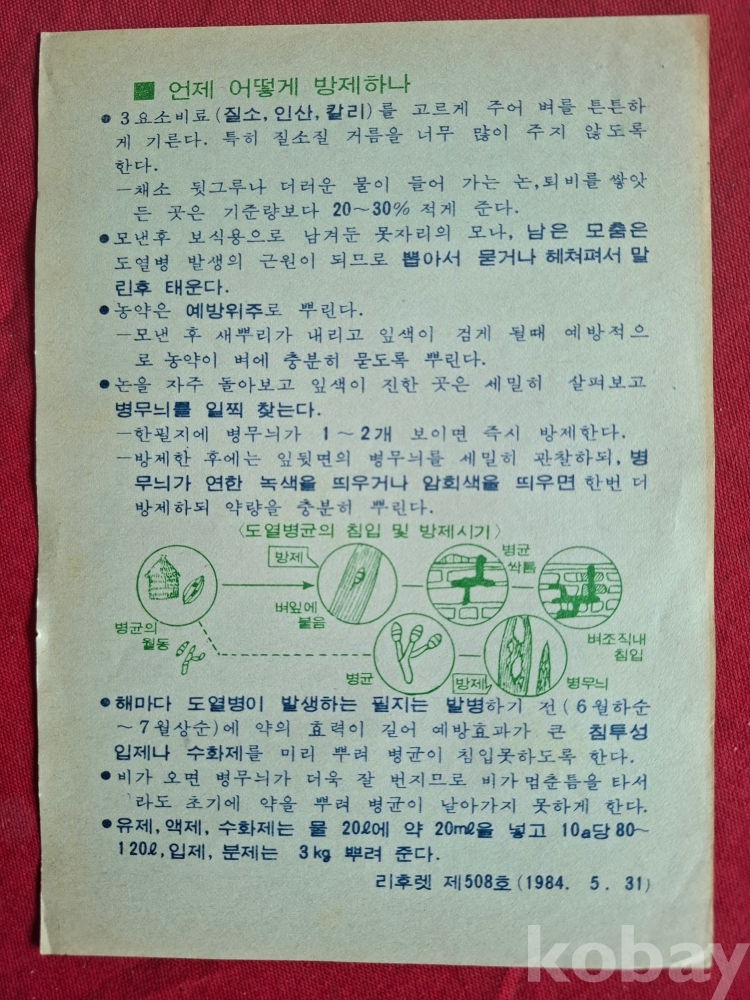 ■ 언제 어떻게 방제하나
● 3요소비료(질소, 인산, 칼리)를 고르게 주어 벼를 튼튼하
게 기른다. 특히 질소질 거름을 너무 많이 주지 않도록
한다.
－채소 뒷그루나 더러운 물이 들어 가는 논, 퇴비를 쌓앗
든 곳은 기준량보다 20～30% 적게 준다.
● 모낸후 보식용으로 남겨둔 못자리의 모나, 남은 모춤은
도열병 발생의 근원이 되므로 뽑아서 묻거나 헤쳐펴서 말
린후 태운다.
● 농약은 예방위주로 뿌린다.
－모낸 후 새뿌리가 내리고 잎색이 검게 될때 예방적으
로 농약이 벼에 충분히 묻도록 뿌린다.
● 논을 자주 돌아보고 잎색이 진한 곳은 세밀히 살펴보고
병무늬를 일찍 찾는다.
－한필지에 병무늬가 1～2개 보이면 즉시 방제한다.
－방제한 후에는 잎뒷면의 병무늬를 세밀히 관찰하되, 병
무늬가 연한 녹색을 띄우거나 암회색을 띄우면 한번 더
방제하되 약량을 충분히 뿌린다.
〈도열병균의 침입 및 방제시기〉
방제
병균
싹틈
병균의
월동
벼잎에
붙음
벼조직내
침입
병균
방제
병무늬
● 해마다 도열병이 발생하는 필지는 발병하기 전(6월하순
～7월상순)에 약의 효력이 길어 예방효과가 큰 침투성
입제나 수화제를 미리 뿌려 병균이 침입못하도록 한다.
● 비가 오면 병무늬가 더욱 잘 번지므로 비가 멈춘틈을 타서
라도 초기에 약을 뿌려 병균이 날아가지 못하게 한다.
● 유제, 액제, 수화제는 물 20ℓ에 약 20mℓ을 넣고 10a당 80～
120ℓ, 입제, 분제는 3kg 뿌려 준다.
리후렛 제508호(1984. 5. 31)
kobay